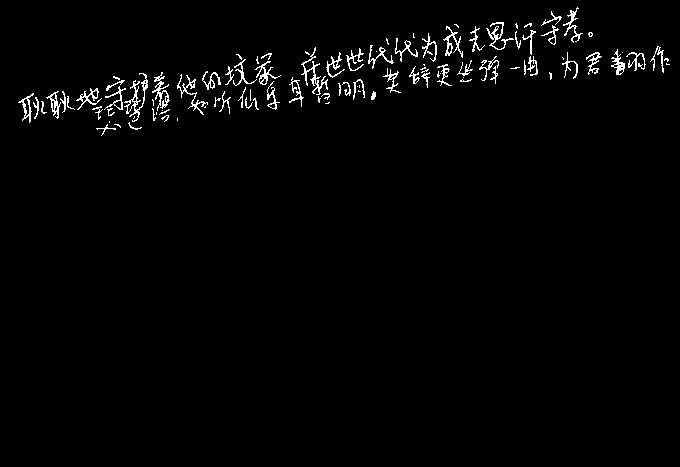 耿耿地守护着他的坟冢，并世世代代为成吉思汗守孝。
琵琶语，如听仙乐耳暂明。莫辞更坐弹一曲，为君翻作